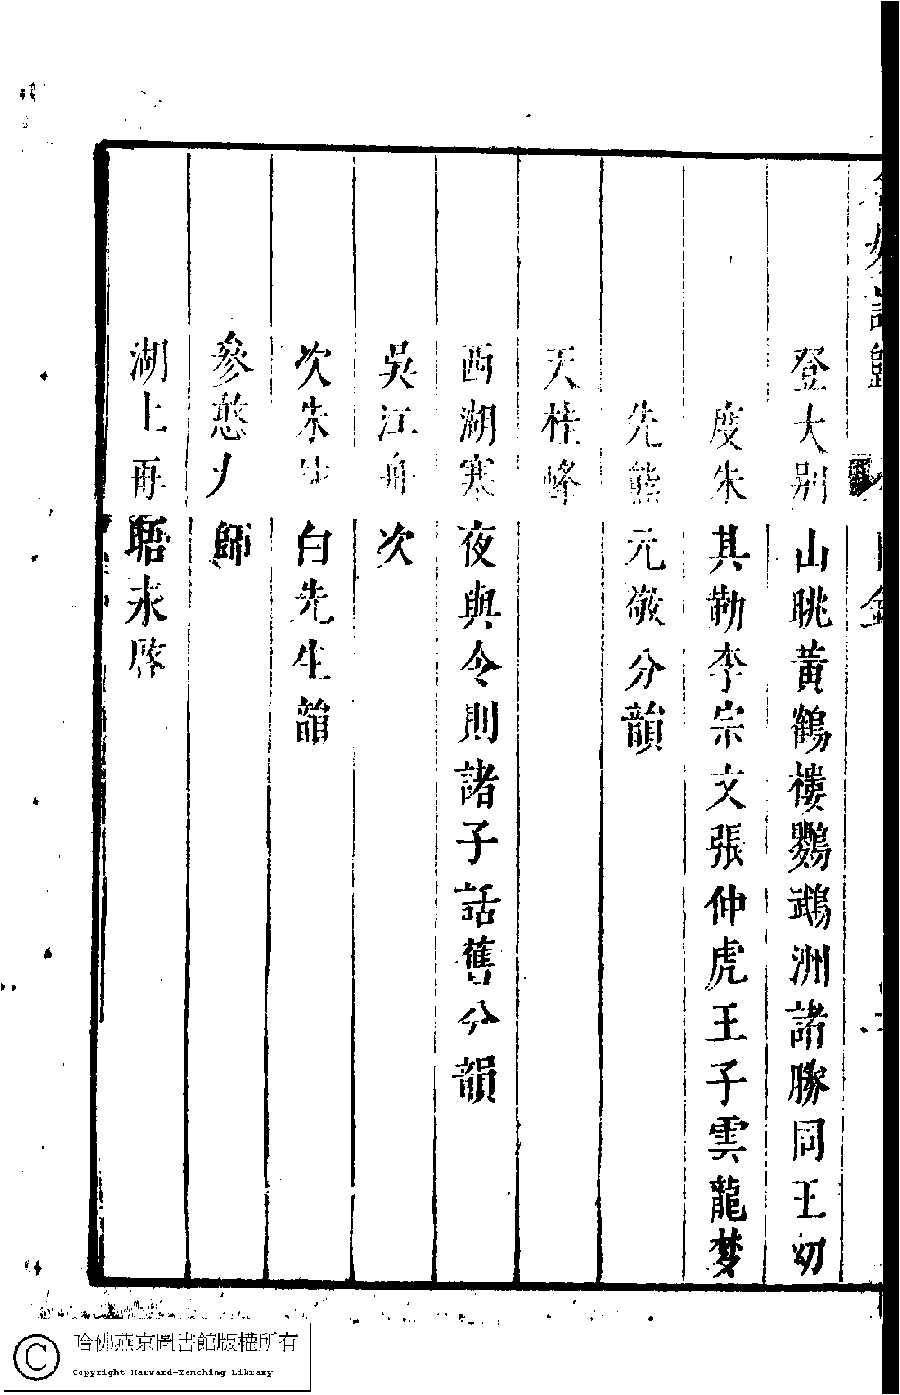 登大別山眺黃鶴樓鸚鵡洲諸勝同王幼
度朱其勒李宗文張仲虎王子雲龍梦
先熊元敬分韻
天柱峰
西湖寒夜與令則諸子話舊分韻
吳江舟次
次朱白先生韻
參憨大師
湖上再晤
哈佛燕京圖書館版權所有
Copyright Harvard-Yenching Library